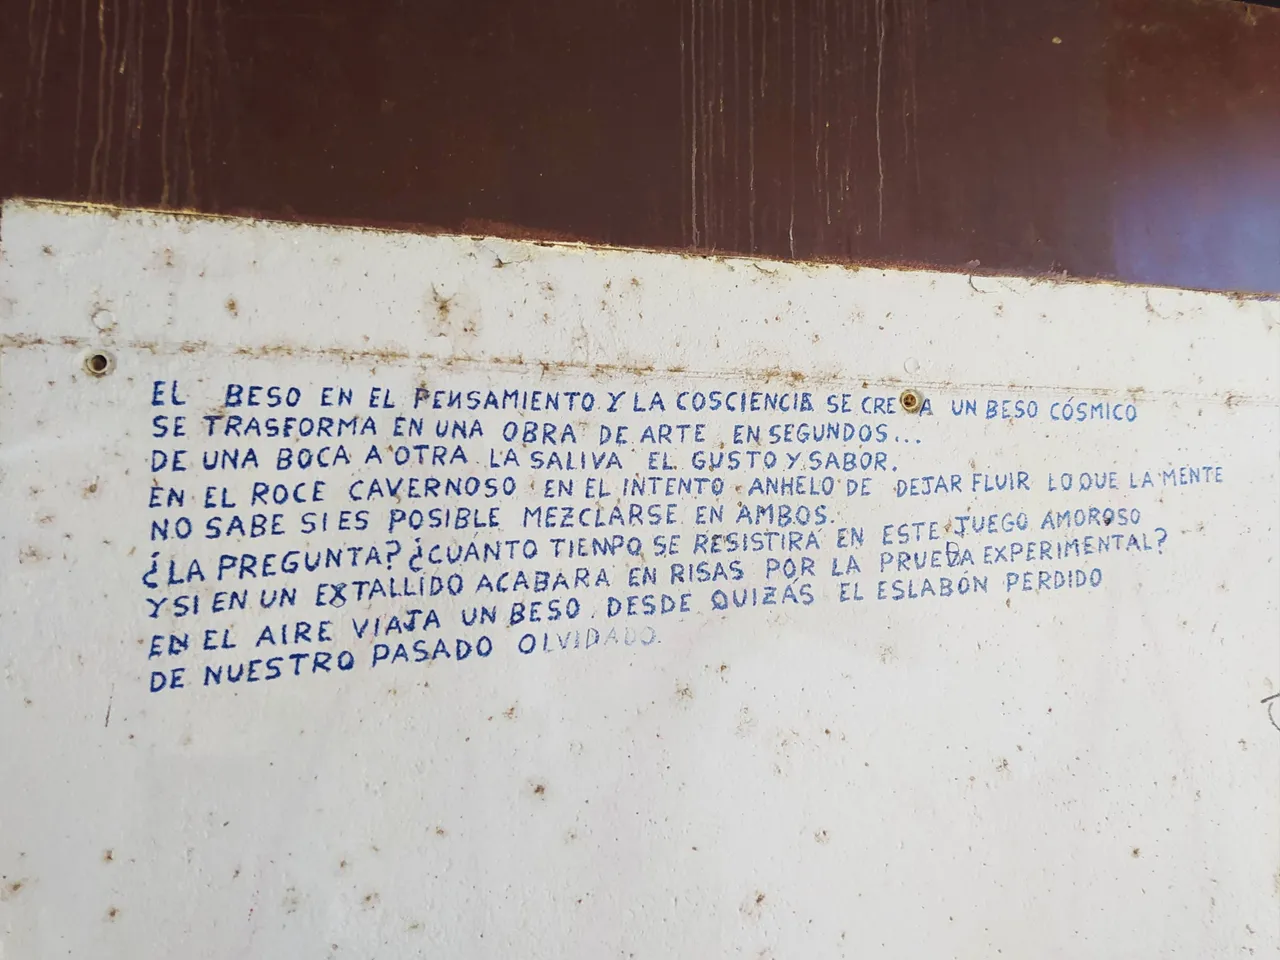 EL BESO EN EL PENSAMIENTO Y LA COSCIENCIA SE CREA UN BESO CÓSMICO
SE TRASFORMA EN UNA OBRA DE ARTE EN SEGUNDOS...
DE UNA BOCA A OTRA LA SALIVA EL GUSTO Y SABOR.
EN EL ROCE CAVERNOSO EN EL INTENTO ANHELO DE DEJAR FLUIR LO QUE LA MENTE
NO SABE SI ES POSIBLE MEZCLARSE EN AMBOS.
¿LA PREGUNTA? ¿CUÁNTO TIENPO SE RESISTIRA EN ESTE JUEGO AMOROSO
Y SI EN UN EXTALLIDO ACABARA EN RISAS POR LA PRUEBA EXPERIMENTAL?
EN EL AIRE VIAJA UN BESO. DESDE QUIZÁS EL ESLABÓN PERDIDO
DE NUESTRO PASADO OLVIDADO.